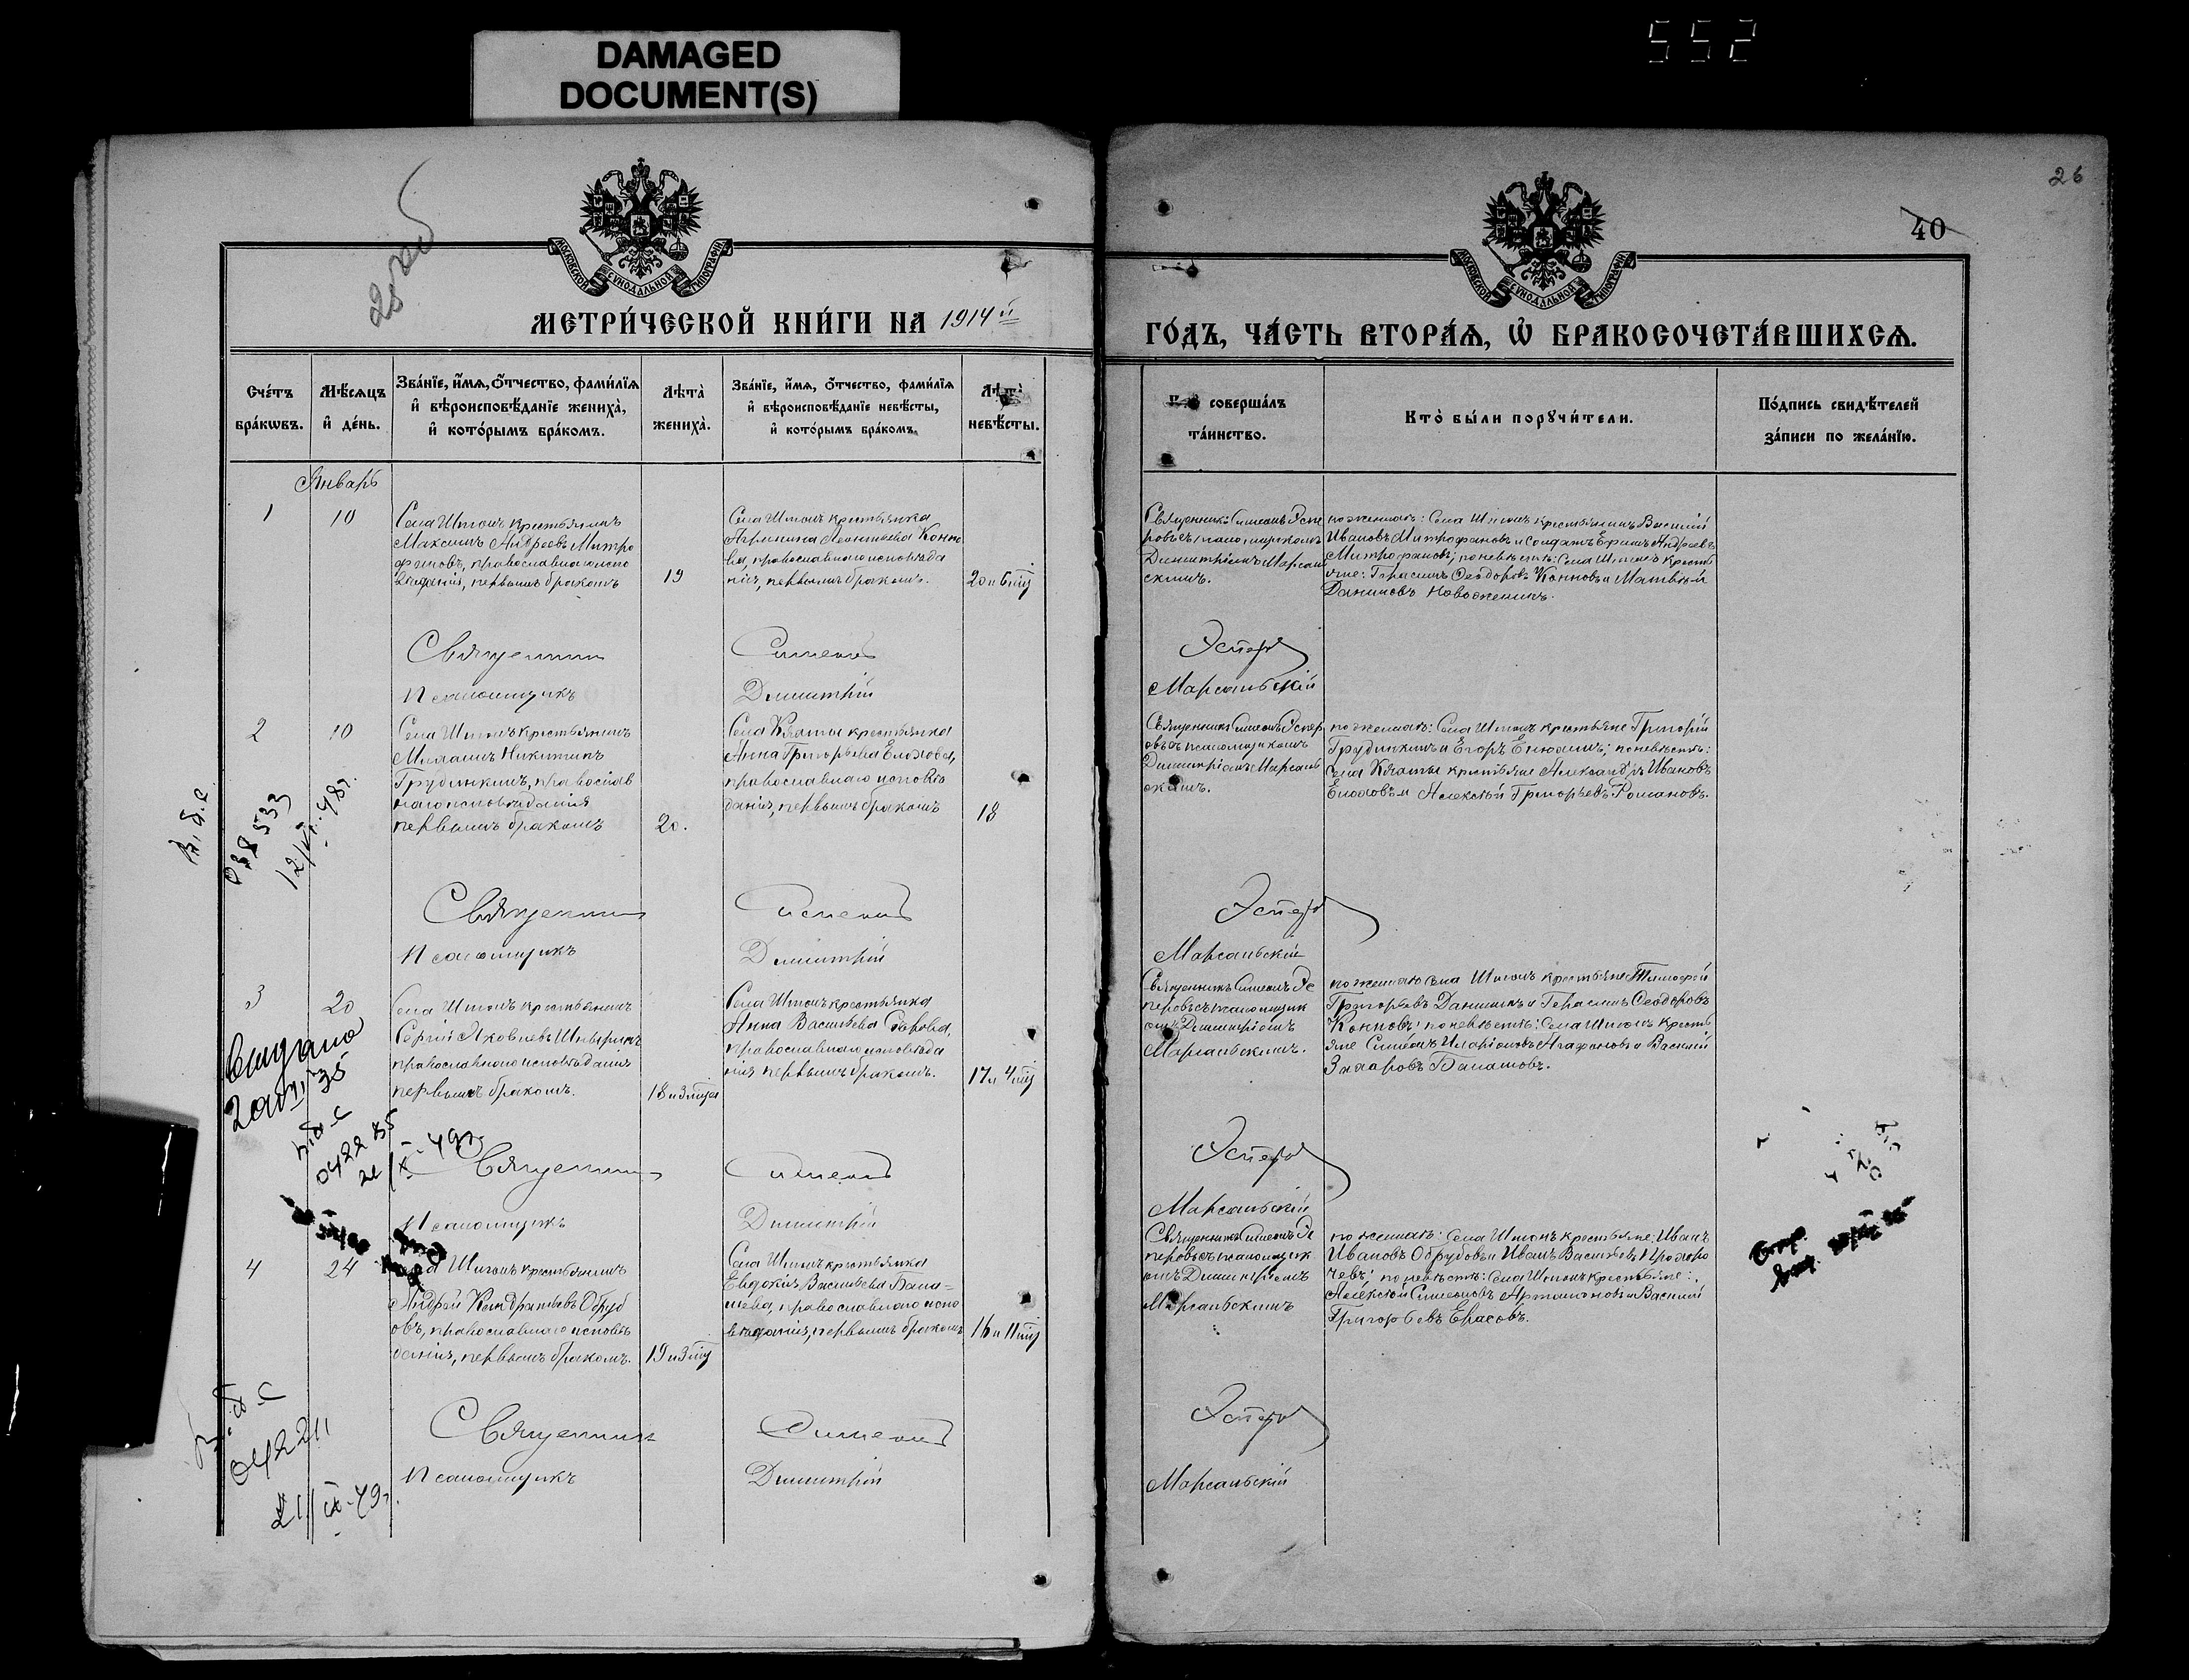 DAMAGED
DOCUMENT(S)
552
26
40
МОСКОВСКОЙ СѴНОДАЛЬНОЙ ТИПОГРАФІИ
МОСКОВСКОЙ СѴНОДАЛЬНОЙ ТИПОГРАФІИ
МЕТРИ́ЧЕСКОЙ КНИ́ГИ НА 1914й
ГО́ДЪ, ЧА́СТЬ ВТОРА́Ѧ, Ѡ҆ БРАКОСОЧЕТА́ВШИХСѦ.
Сче́тъ
бра́кѡвъ.
Мѣ́сѧцъ
и҆ де́нь.
Зва́нїе, и҆́мѧ, ѻ҆́тчество, фами́лїѧ
и҆ вѣроисповѣ́данїе жениха̀,
и҆ кото́рымъ бра́комъ.
Лѣта̀
жениха̀.
Зва́нїе, и҆́мѧ, ѻ҆́тчество, фами́лїѧ
и҆ вѣроисповѣ́данїе невѣ́сты,
и҆ кото́рымъ бра́комъ.
Лѣта̀
невѣ́сты.
соверша́лъ
та́инство.
Кто̀ бы́ли порꙋчи́тели.
По́дпись свидѣ́телей
за́писи по жела́нїю.
Январь
1
10
Села Шигонъ крестьянинъ
Максимъ Андреевъ Митро
фановъ, православнаго испо
вѣданія, первымъ бракомъ
19
Села Шигонъ крестьянка
Агрипина Леонтьева Конно
ва, православнаго исповѣда
нія, первымъ бракомъ.
20 и 6 мц
Священникъ Симеонъ Эспе
ровъ съ псаломщикомъ
Димитріемъ Марсаль
скимъ.
по женихѣ: Села Шигонъ крестьянинъ Василій
Ивановъ Митрофановъ и солдатъ Ефимъ Андреевъ
Митрофановъ; по невѣстѣ: Села Шигонъ кресть
яне: Герасимъ Ѳеодоровъ Конновъ и Матвѣй
Даниловъ Новоженинъ.
Священникъ
Симеонъ
Эсперовъ
Псаломщикъ
Димитрій
Марсальскій
2
10
Села Шигонъ крестьянинъ
Никитинъ
Грудинкинъ, православ
наго исповѣданія
первымъ бракомъ
20.
Села Кяхты крестьянка
Анна Григорьева Елохова,
православнаго исповѣ
данія, первымъ бракомъ
18
Священникъ Симеонъ Эспер
овъ съ псаломщикомъ
Димитріемъ Марсаль
скимъ.
по женихѣ: Села Шигонъ крестьяне Григорій
Грудинкинъ и Егоръ Енюшинъ; по невѣстѣ:
Села Кяхты крестьяне Александръ Ивановъ
Елоховъ и Алексѣй Григорьевъ Романовъ.
Священникъ
Симеонъ
Эсперовъ
Псаломщикъ
Димитрій
Марсальскій
3
20
Села Шигонъ крестьянинъ
Сергій Яковлевъ
православнаго исповѣданія
первымъ бракомъ.
18 и 3 мца
Села Шигонъ крестьянка
Анна Васильева
православнаго исповѣда
нія первымъ бракомъ.
17 и 4 мц
Священникъ Симеонъ Эс
перовъ съ псаломщик
омъ Димитріемъ
Марсальскимъ.
по женихѣ Села Шигонъ крестьяне Тимофей
Григорьевъ Данилинъ и Герасимъ Ѳеодоровъ
Конновъ; по невѣстѣ: Села Шигонъ кресть
яне Симеонъ Иларіоновъ Агафоновъ и Василій
Захаровъ Балашовъ.
Священникъ
Симеонъ
Эсперовъ
Псаломщикъ
Димитрій
Марсальскій
4
24
Села Шигонъ крестьянинъ
Андрей Кондратьевъ Обруб
овъ, православнаго исповѣ
данія, первымъ бракомъ.
19 и 3 мц
Села Шигонъ крестьянка
Евдокія Васильева Бала-
шева, православнаго испо
вѣданія, первымъ бракомъ
16 и 11 мц
Священникъ Симеонъ Эс
перовъ съ псаломщик
омъ Димитріемъ
Марсальскимъ
по женихѣ: Села Шигонъ крестьяне: Иванъ
Ивановъ Обрубовъ и Иванъ Васильевъ
по невѣстѣ: Села Шигонъ крестьяне:
Алексѣй Симеоновъ Артамоновъ и Василій
Григорьевъ Ерасовъ.
Священникъ
Симеонъ
Эсперовъ
Псаломщикъ
Димитрій
Марсальскій